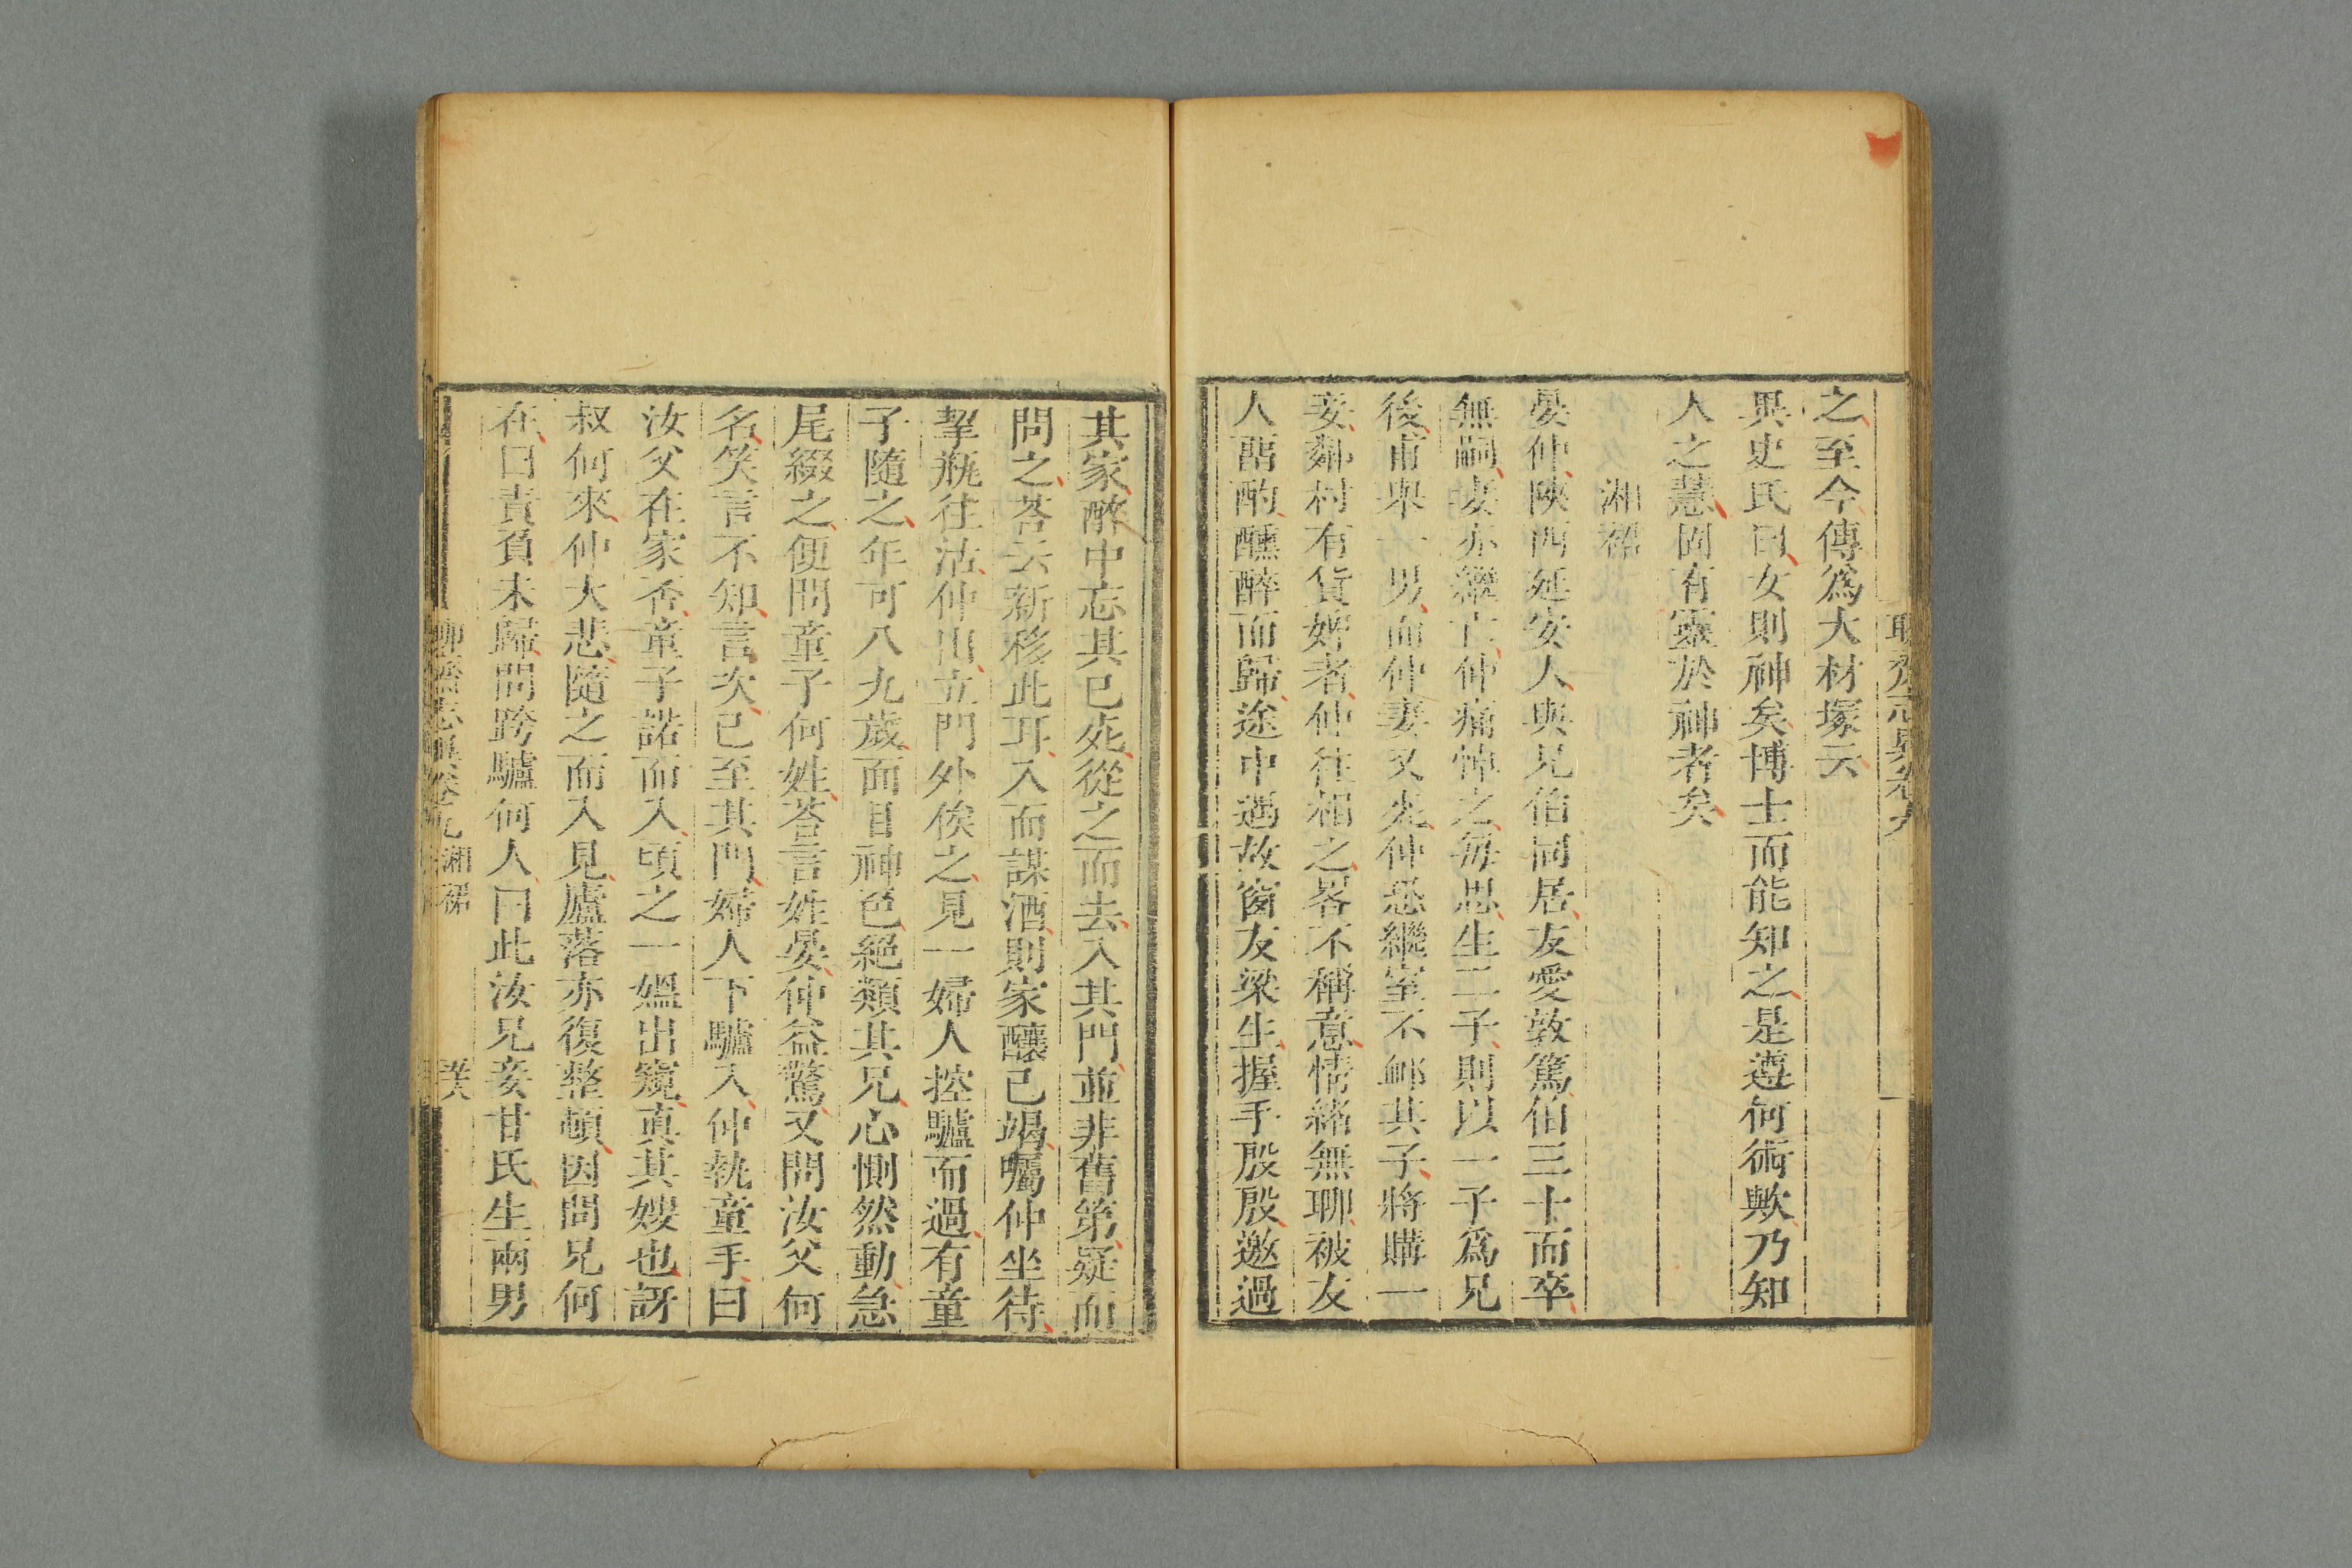 之至今傳爲大材塚云
異史氏曰女則神矣博士而能知之是遵何術歟乃知
人之慧固有靈於神者矣
湘裙
晏仲陝西延安人與兄伯同居友愛敦篤伯三十而卒
無嗣妻亦繼亡仲痛悼之每思生二子則以一子爲兄
後甫舉一男而仲妻又死仲恐繼室不䘏其子將購一
妾鄰村有貨婢者仲往相之畧不稱意情緒無聊被友
人畱酌醺醉而歸途中遇故窗友梁生握手殷殷邀過
其家醉中忘其已死從之而去入其門並非舊第疑而
問之荅云新移此耳入而謀酒則家釀已竭囑仲坐待
挈瓶往沽仲出立門外俟之見一婦人控驢而過有童
子隨之年可八九歲面目神色絕類其兄心惻然動急
尾綴之便問童子何姓荅言姓晏仲益驚又問汝父何
名笑言不知言次已至其門婦人下驢入仲執童手曰
汝父在家否童子諾而入頃之一媼出窺真其嫂也訝
叔何來仲大悲隨之而入見廬落亦復整頓因問兄何
在曰責負未歸問跨驢何人曰此汝兄妾甘氏生兩男
聊齋志異卷九 湘裙